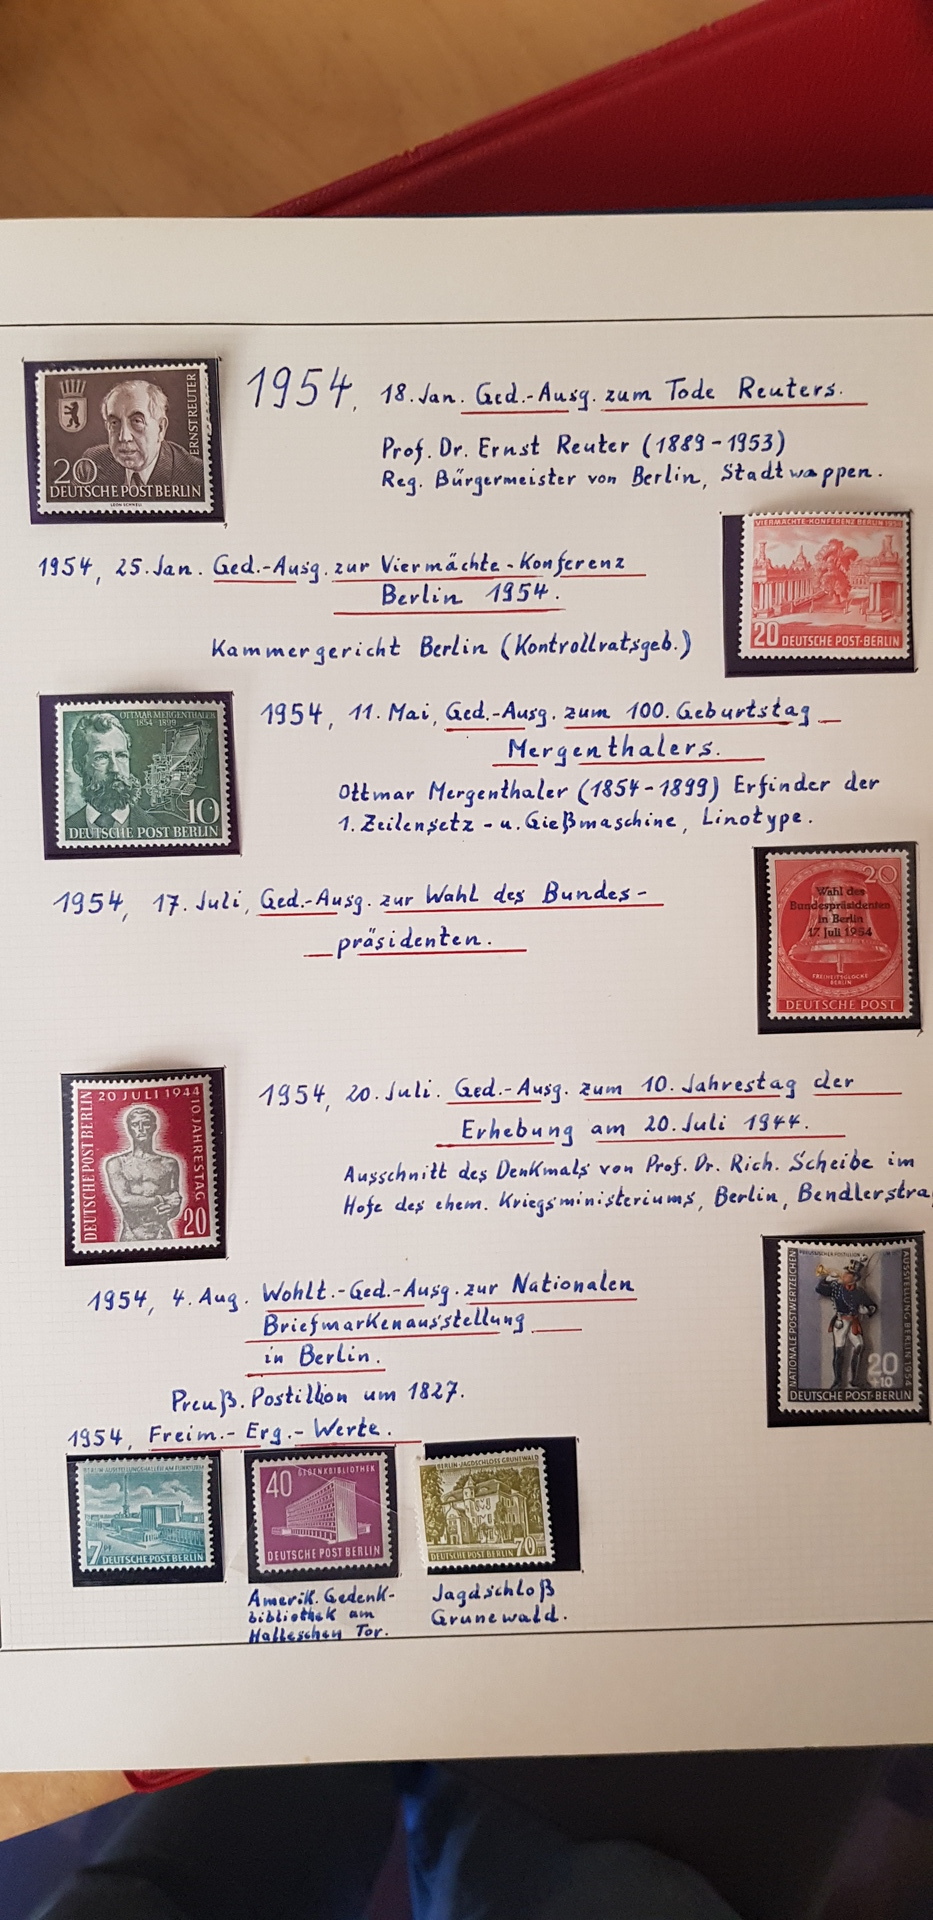 ERNST REUTER
20
DEUTSCHE POST BERLIN
LEON SCHNELL
1954, 18. Jan. Ged.-Ausg. zum Tode Reuters.
Prof. Dr. Ernst Reuter (1889-1953)
Reg. Bürgermeister von Berlin, Stadtwappen.
1954, 25. Jan. Ged.-Ausg. zur Viermächte-Konferenz
Berlin 1954.
Kammergericht Berlin (Kontrollratsgeb.)
VIERMÄCHTE-KONFERENZ BERLIN 1954
20 DEUTSCHE POST-BERLIN
OTTMAR MERGENTHALER
1854 1899
10
DEUTSCHE POST BERLIN
1954, 11. Mai, Ged.-Ausg. zum 100. Geburtstag
Mergenthalers.
Ottmar Mergenthaler (1854-1899) Erfinder der
1. Zeilensetz- u. Gießmaschine, Linotype.
1954, 17. Juli, Ged.-Ausg. zur Wahl des Bundes-
präsidenten.
20
Wahl des
Bundespräsidenten
in Berlin
17. Juli 1954
FREIHEITSGLOCKE
BERLIN
DEUTSCHE POST
20. JULI 1944
DEUTSCHE POST BERLIN
10. JAHRESTAG
20
1954, 20. Juli. Ged.-Ausg. zum 10. Jahrestag der
Erhebung am 20. Juli 1944.
Ausschnitt des Denkmals von Prof. Dr. Rich. Scheibe im
Hofe des ehem. Kriegsministeriums, Berlin, Bendlerstra
1954, 4. Aug. Wohlt.-Ged.-Ausg. zur Nationalen
Briefmarkenausstellung
in Berlin.
Preuß. Postillion um 1827.
PREUSSISCHER POSTILLION
NATIONALE POSTWERTZEICHEN
AUSSTELLUNG BERLIN 1954
20
+10
DEUTSCHE POST-BERLIN
1954, Freim.- Erg.- Werte.
BERLIN-AUSSTELLUNGSHALLEN AM FUNKTURM
7 Pf DEUTSCHE POST BERLIN
40 GEDENKBIBLIOTHEK
DEUTSCHE POST BERLIN
BERLIN-JAGDSCHLOSS GRUNEWALD
DEUTSCHE POST BERLIN 70 Pf
Amerik. Gedenk-
bibliothek am
Halleschen Tor.
Jagdschloß
Grunewald.